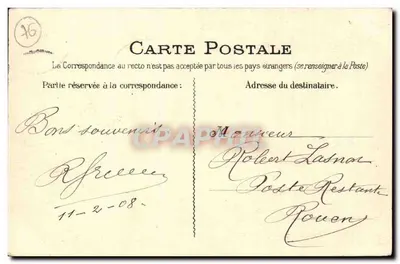 76
CARTE POSTALE
La Correspondance au recto n'est pas acceptée par tous les pays étrangers (se renseigner à la Poste)
Partie réservée à la correspondance :
Adresse du destinataire.
Bons souvenirs
11-2-08-
Monsieur
Robert Lasnon
Poste Restante
Rouen
CPAPHIL